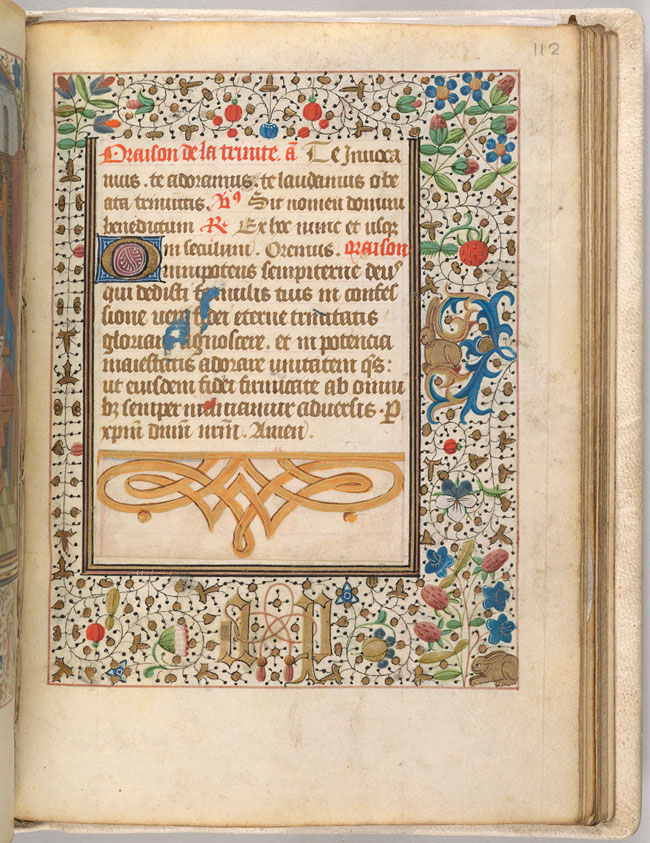 112
Oraison de la trinite. a Te invoca
mus. te adoramus. te laudamus o be
ata trinitas. V9 Sit nomen domini
benedictum R Ex hoc nunc et usq
in seculum. Oremus. oraison
Omnipotens sempiterne deus
qui dedisti famulis tuis in confes
sione vere fidei eterne trinitatis
gloriam agnoscere. et in potencia
maiestatis adorare unitatem qs:
ut eiusdem fidei firmitate ab omni
bz semper muniamur adversis. P
xpm dnm nrm. Amen.